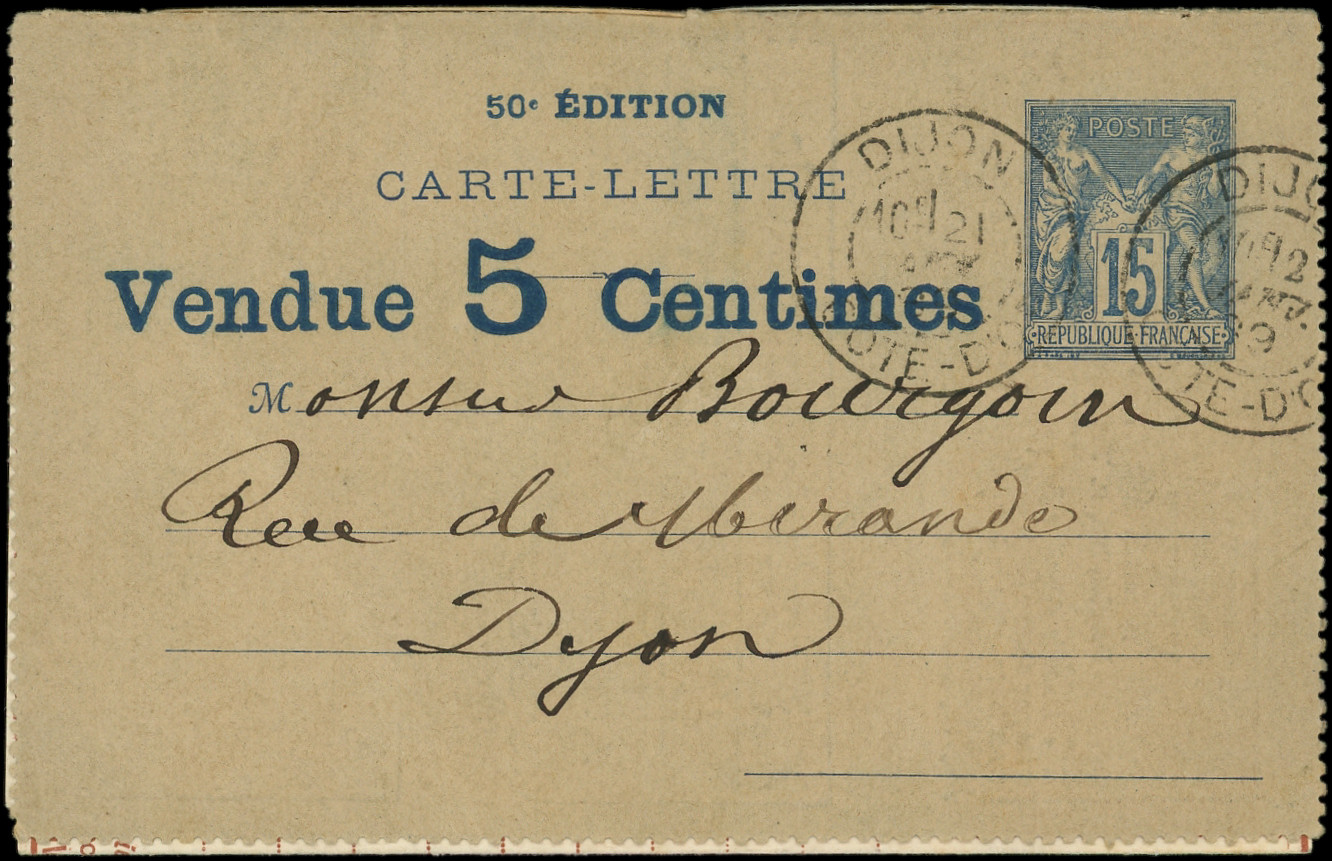 50e ÉDITION
CARTE-LETTRE
Vendue 5 Centimes
POSTE
15
RÉPUBLIQUE FRANÇAISE
DIJON
21
COTE-D'O
DIJO
JANV.
TE-D'O
Monsieur Bourgoin
Rue de Mirande
Dijon